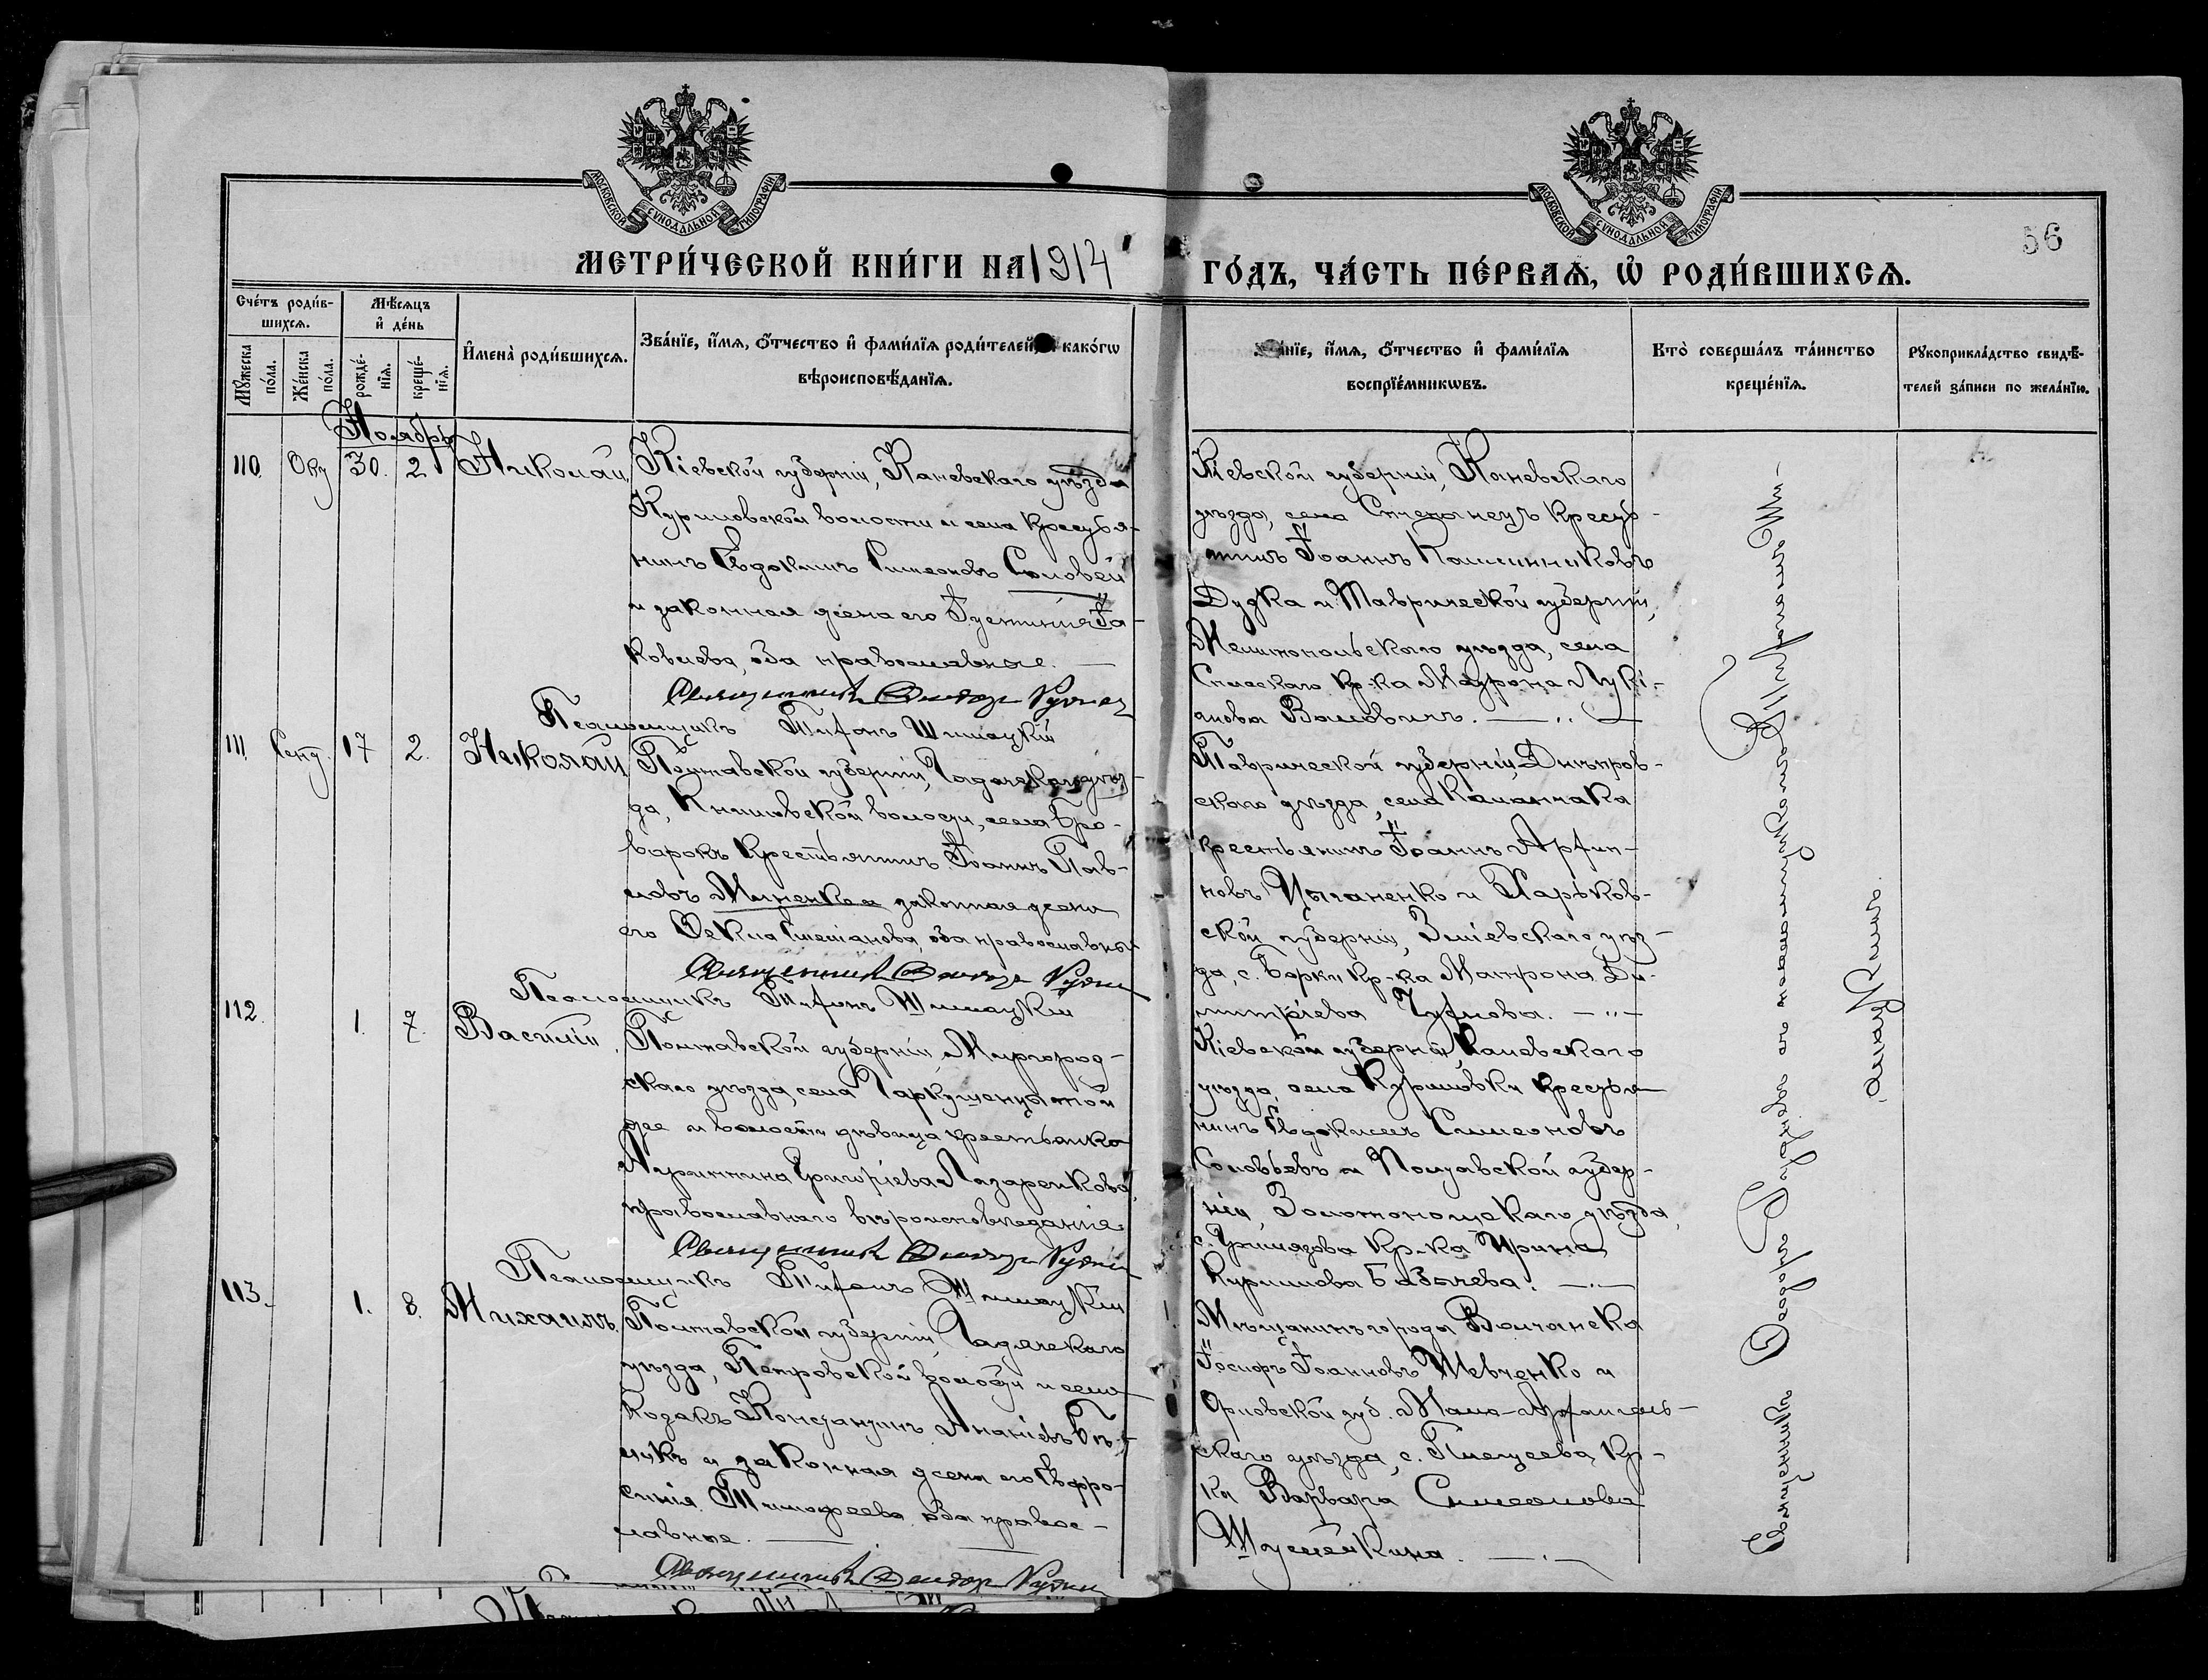 МОСКОВСКОЙ СѴНОДАЛЬНОЙ ТИПОГРАФИИ
МОСКОВСКОЙ СѴНОДАЛЬНОЙ ТИПОГРАФИИ
56
МЕТРИ́ЧЕСКОЙ КНИ́ГИ НА 1914
ГО́ДЪ, ЧА́СТЬ ПЕ́РВАѦ, Ѡ҆ РОДИ́ВШИХСѦ.
Сче́тъ роди́в-
шихсѧ.
Мѣ́сяцъ
и҆ де́нь
Мꙋ́жеска
по́ла.
Же́нска
по́ла.
рожде́-
нїѧ.
креще́-
нїѧ.
И҆мена̀ роди́вшихсѧ.
Зва́нїе, и҆́мѧ, ѻ҆́тчество и҆ фами́лїѧ роди́телей, како́гѡ
вѣроисповѣ́данїѧ.
нїе, и҆́мѧ, ѻ҆́тчество и҆ фами́лїѧ
воспрїе́мникѡвъ.
Кто̀ соверша́лъ та́инство
креще́нїѧ.
Рꙋкоприкла́дство свидѣ́-
телей за́писи по жела́нїю.
Ноябрь
110. Окт 30. 2 Николай
Кіевской губерніи, Каневскаго уѣзда
Куриловской волости и села крестья-
нинъ Евдокимъ Симеоновъ Соловей
и законная жена его Іустинія Іа-
ковлева, оба православные.
Священникъ Ѳеодоръ
Псаломщикъ Тифонъ Шишацкій
Кіевской губерніи, Каневскаго
уѣзда, села Степанецъ крестья-
нинъ Іоаннъ Каллинниковъ
Дудка и Таврической губерніи,
Мелитопольскаго уѣзда, села
Спасскаго кр-ка Матрона Лукі-
анова Валовичъ.
111. Сент. 17 2. Николай
Полтавской губерніи, Гадячскаго уѣз-
да, Книшовской волости, села Бро-
варокъ крестьянинъ Іоаннъ Пав-
ловъ Миненко и законная жена
его Ѳекла Стефанова, оба православны
Священникъ Ѳеодоръ
Псаломщикъ Тифонъ Шишацкій
Таврической губерніи, Днѣпров-
скаго уѣзда, села Каланчака
крестьянинъ Іоаннъ
новъ Цыганенко и Харьков-
ской губерніи, Зміевскаго уѣз-
да, с. Борки кр-ка Матрона Ди-
митріева
112. 1. 7. Василій
Полтавской губерніи, Миргород-
скаго уѣзда, села Гаркушенцы той
же и волости дѣвица крестьянка
Григоріева Лазаренкова,
православнаго вѣроисповѣданія.
Священникъ Ѳеодоръ
Псаломщикъ Тифонъ Шишацкій
Кіевской губерніи, Каневскаго
уѣзда, села Куриловки крестья-
нинъ Евдокимъ Симеоновъ
Соловьевъ и Полтавской губер-
ніи, Золотоношскаго уѣзда,
кр-ка Ирина
Кириллова
113. 1. 8. Михаилъ.
Полтавской губерніи, Гадячскаго
уѣзда, Петровской волости и села
козакъ Константинъ Ананіевъ Бѣ-
ликъ и законная жена его Евфро-
синія Тимофеева, оба правос-
лавные.
Священникъ Ѳеодоръ
Мѣщанинъ города Волчанска
Іосифъ Іоанновъ Шевченко и
Орловской губ. Мало-Архангель-
скаго уѣзда, с. кр-
ка Варвара Симеонова
Священникъ Ѳеодоръ Рудневъ съ псаломщикомъ